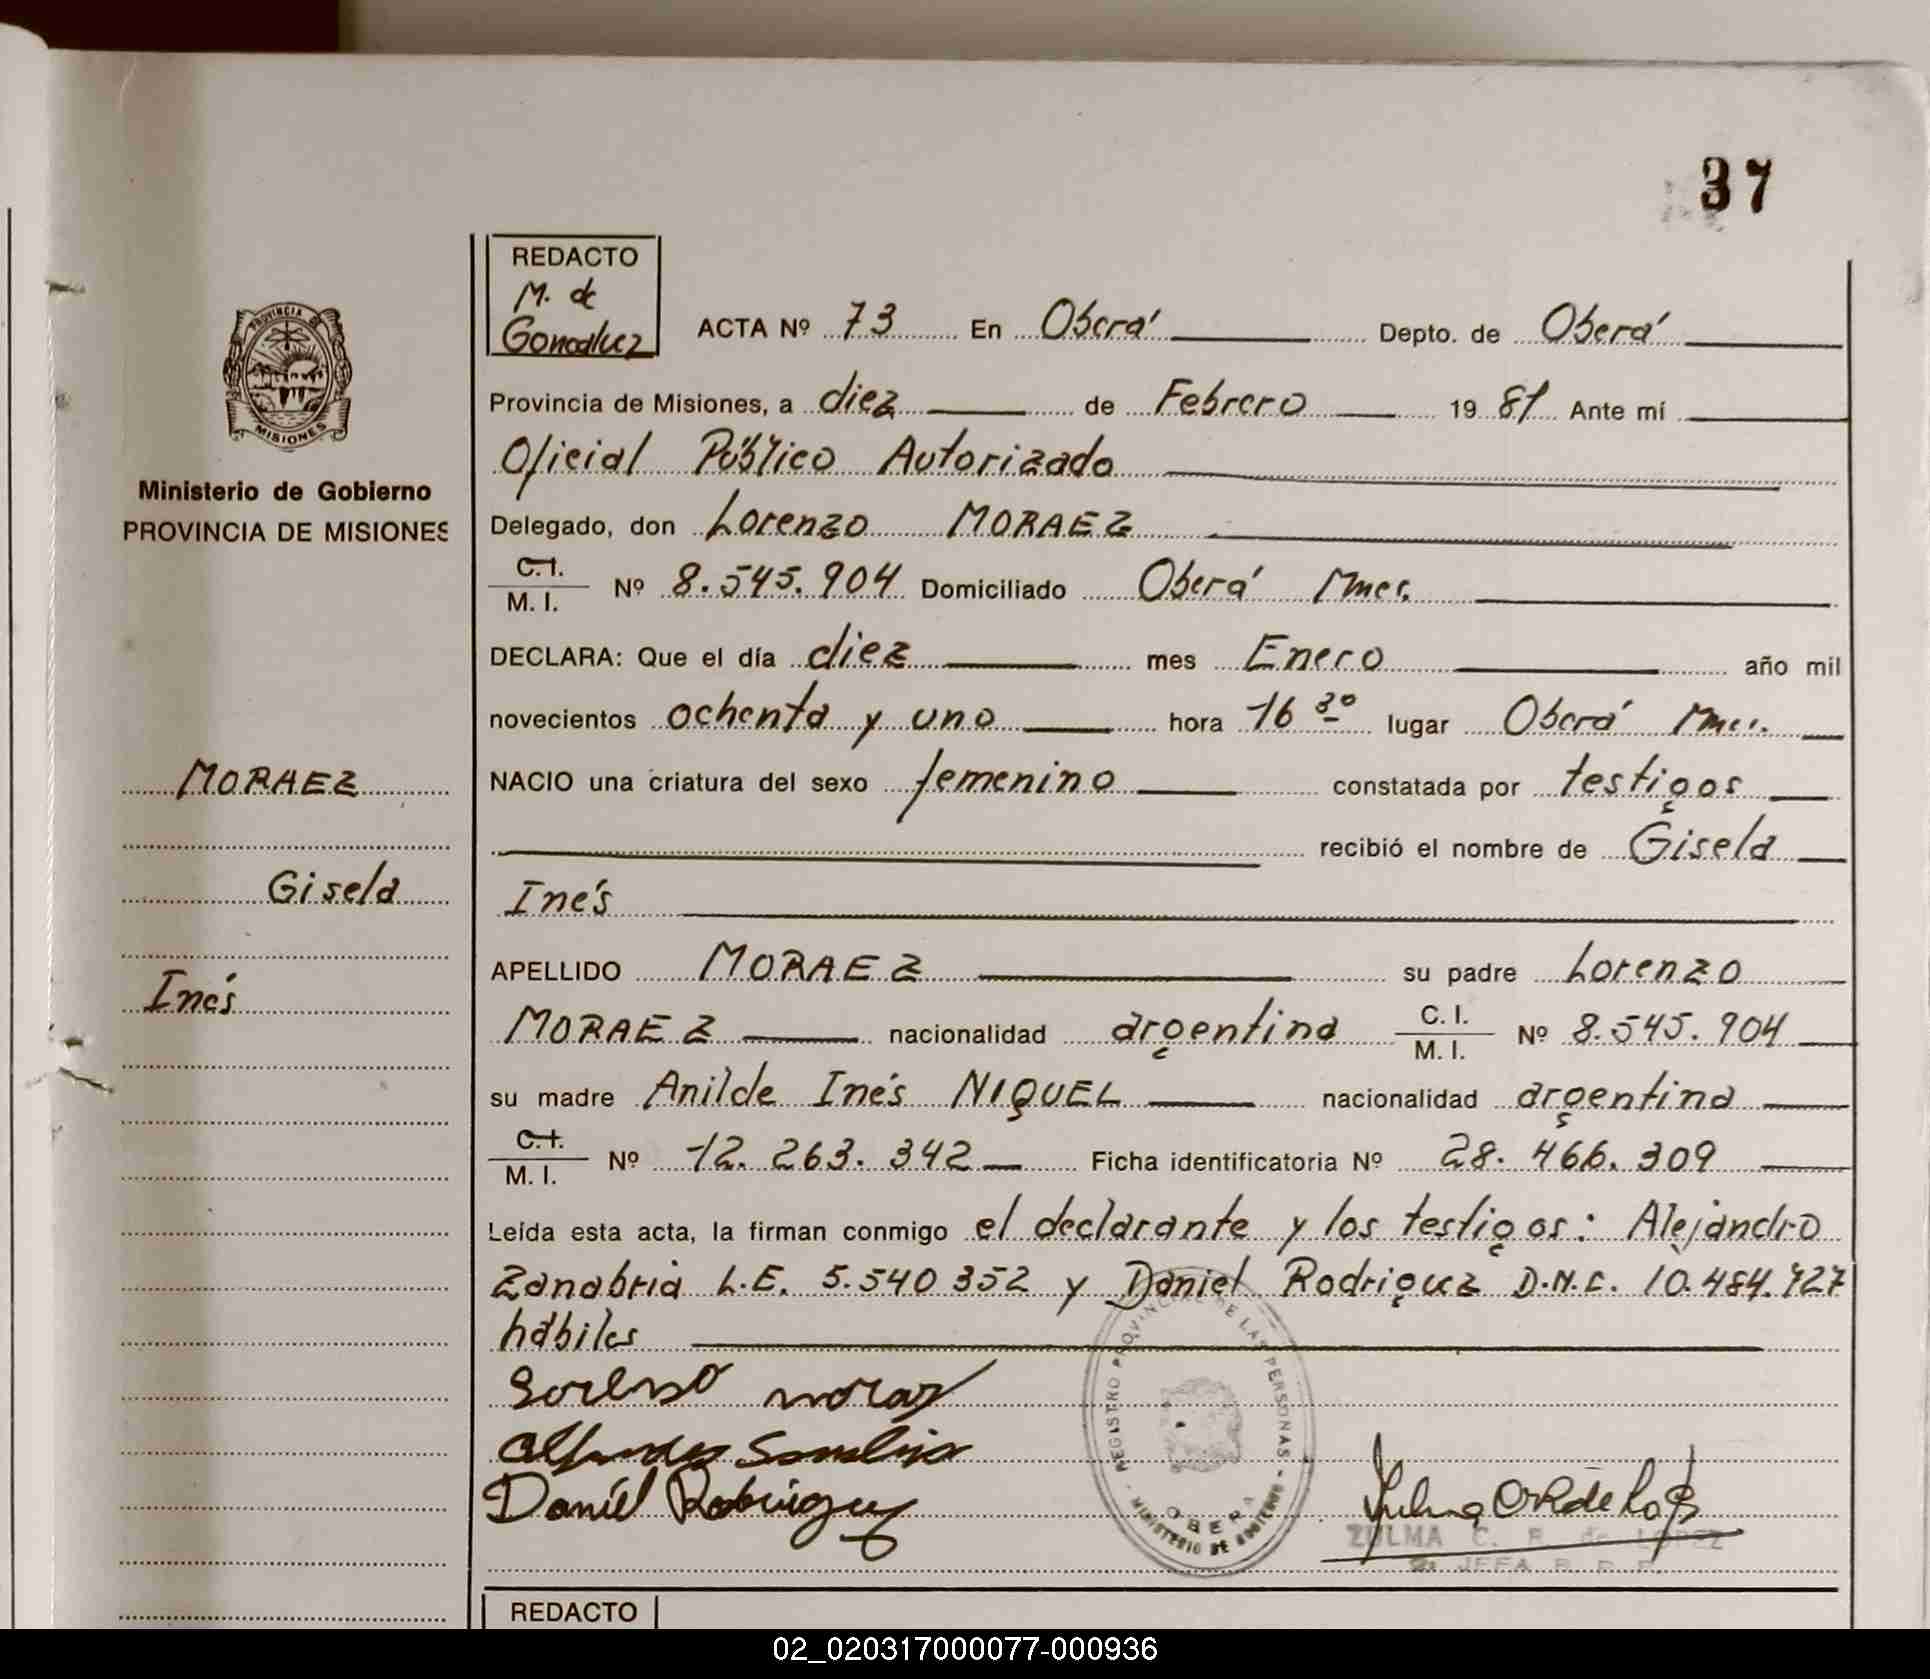 37
REDACTO
M. de
Gonzalez
ACTA Nº 73 En Oberá Depto. de Oberá
Provincia de Misiones, a diez de Febrero 1981 Ante mí
Oficial Público Autorizado
Delegado, don Lorenzo MORAEZ
C.I. M. I. Nº 8.545.904 Domiciliado Oberá Mnes.
DECLARA: Que el día diez mes Enero año mil
novecientos ochenta y uno hora 16 30 lugar Oberá Mnes.
NACIO una criatura del sexo femenino constatada por testigos
recibió el nombre de Gisela
Inés
APELLIDO MORAEZ su padre Lorenzo
MORAEZ nacionalidad argentina C. I. M. I. Nº 8.545.904
su madre Anilde Inés NIQUEL nacionalidad argentina
C.I. M. I. Nº 12.263.342 Ficha identificatoria Nº 28.466.309
Leída esta acta, la firman conmigo el declarante y los testigos: Alejandro
Zanabria L.E. 5.540352 y Daniel Rodriguez D.N.I. 10.484.727
hábiles
Daniel Rodriguez
PROVINCIA DE
MISIONES
Ministerio de Gobierno
PROVINCIA DE MISIONES
MORAEZ
Gisela
Inés
REGISTRO PROVINCIAL DE LAS PERSONAS
OBERA
MINISTERIO DE GOBIERNO
ZULMA C. R. de LOPEZ
REDACTO
02_020317000077-000936